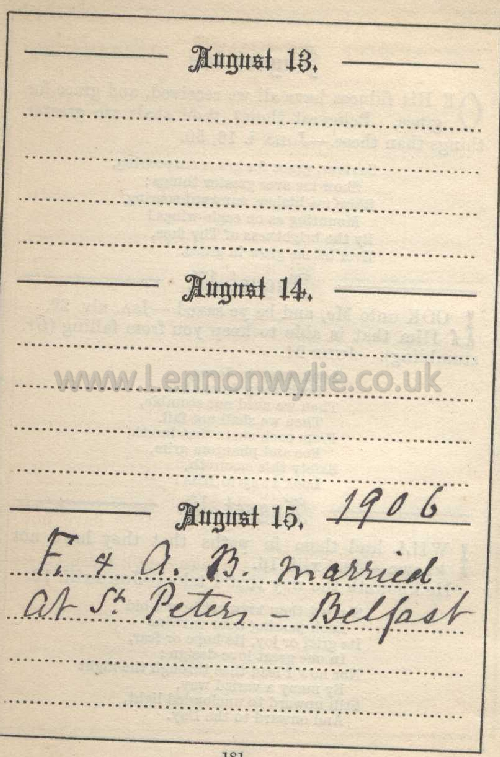 August 13.
August 14.
www.Lennonwylie.co.uk
August 15. 1906
F. & A. B. married
at St Peters – Belfast
181